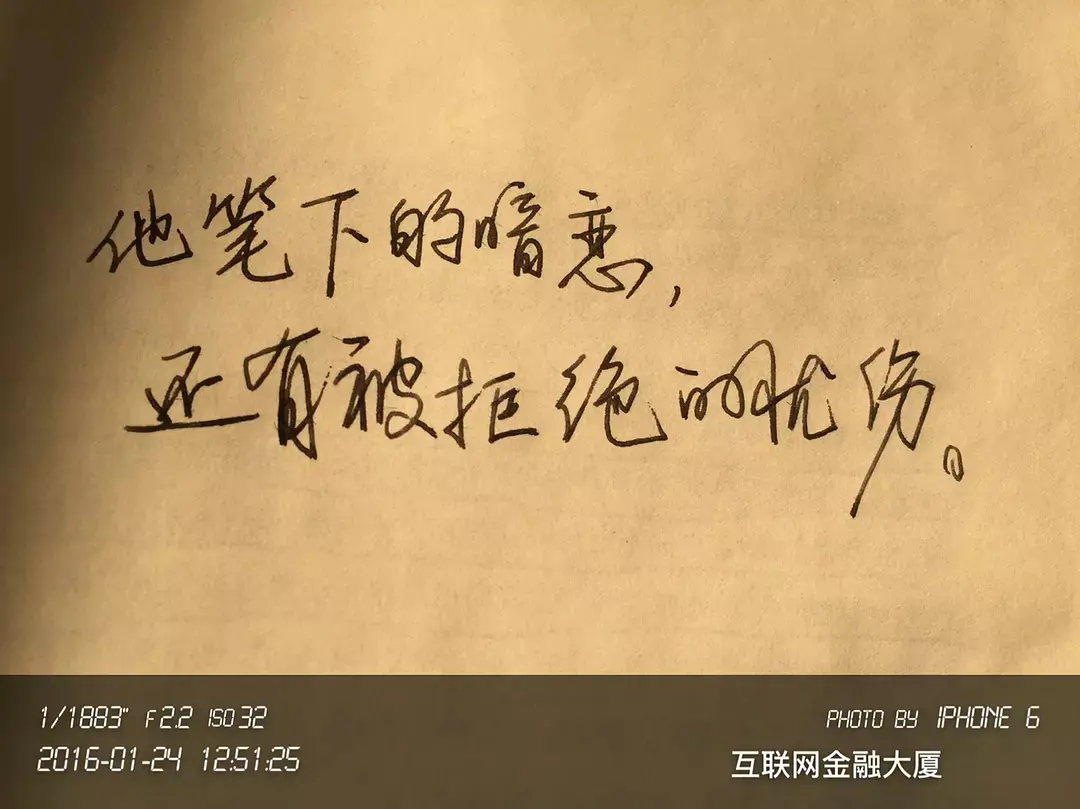 他笔下的暗恋，
还有被拒绝的忧伤。
1/1883" F2.2 ISO 32
2016-01-24 12:51:25
PHOTO BY IPHONE 6
互联网金融大厦